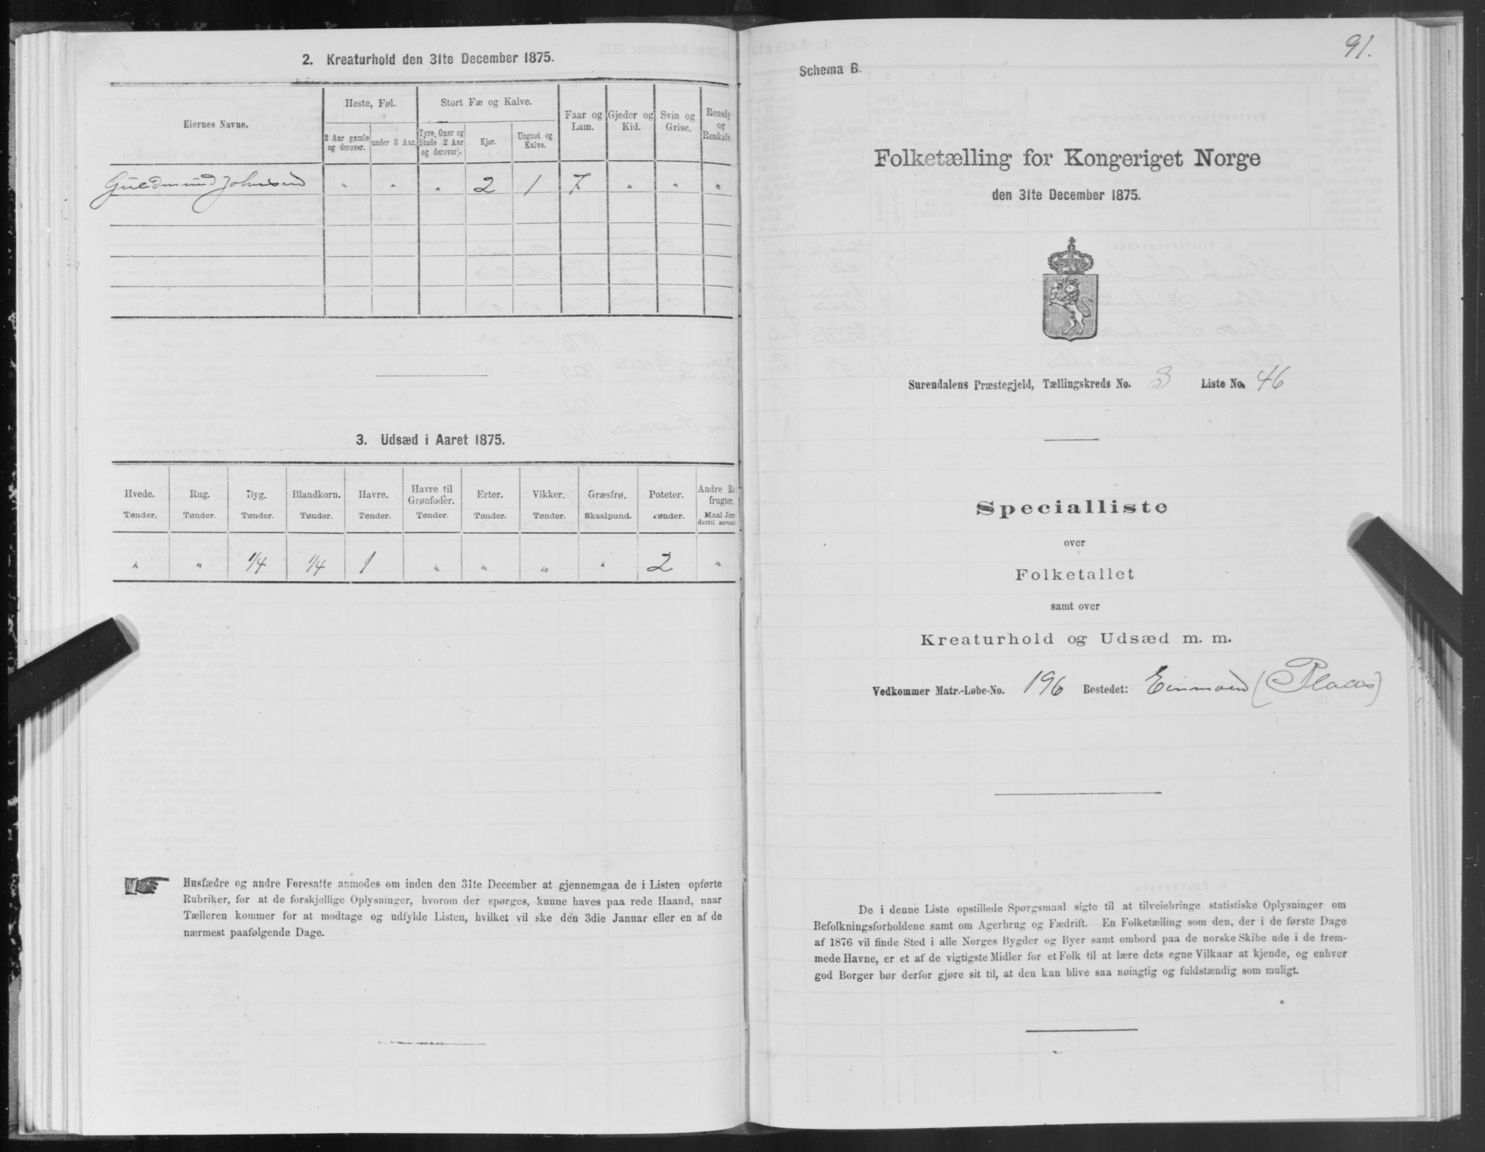 2. Kreaturhold den 31te December 1875.
Eiernes Navne.
Heste, Føl.
Stort Fæ og Kalve.
Faar og Lam.
Gjeder og Kid.
Svin og Grise.
Rensdy og Renkalv
3 Aar gamle og derover.
under 3 Aar.
Tyre, Oxer og Stude (2 Aar og derover).
Kjør.
Ungnøt og Kalve.
Guldmund Johnsen " " " 2 1 7 " " "
3. Udsæd i Aaret 1875.
Hvede. Rug. Byg. Blandkorn. Havre. Havre til Grønfoder. Erter. Vikker. Græsfrø. Poteter. Andre R frugter.
Tønder. Tønder. Tønder. Tønder. Tønder. Tønder. Tønder. Tønder. Skaalpund. Tønder. Maal Jor dertil anvend
" " 1/4 1/4 1 " " " " 2 "
Husfædre og andre Foresatte anmodes om inden den 31te December at gjennemgaa de i Listen opførte
Rubriker, for at de forskjellige Oplysninger, hvorom der spørges, kunne haves paa rede Haand, naar
Tælleren kommer for at modtage og udfylde Listen, hvilket vil ske den 3die Januar eller en af de
nærmest paafølgende Dage.
91.
Schema B.
Folketælling for Kongeriget Norge
den 31te December 1875.
Surendalens Præstegjeld, Tællingskreds No. 3 Liste No. 46
Specialliste
over
Folketallet
samt over
Kreaturhold og Udsæd m. m.
Vedkommer Matr.-Løbe-No. 196 Bostedet: Einmoen (Plads)
De i denne Liste opstillede Spørgsmaal sigte til at tilveiebringe statistiske Oplysninger om
Befolkningsforholdene samt om Agerbrug og Fædrift. En Folketælling som den, der i de første Dage
af 1876 vil finde Sted i alle Norges Bygder og Byer samt ombord paa de norske Skibe ude i de frem-
mede Havne, er et af de vigtigste Midler for et Folk til at lære dets egne Vilkaar at kjende, og enhver
god Borger bør derfor gjøre sit til, at den kan blive saa nøiagtig og fuldstændig som muligt.